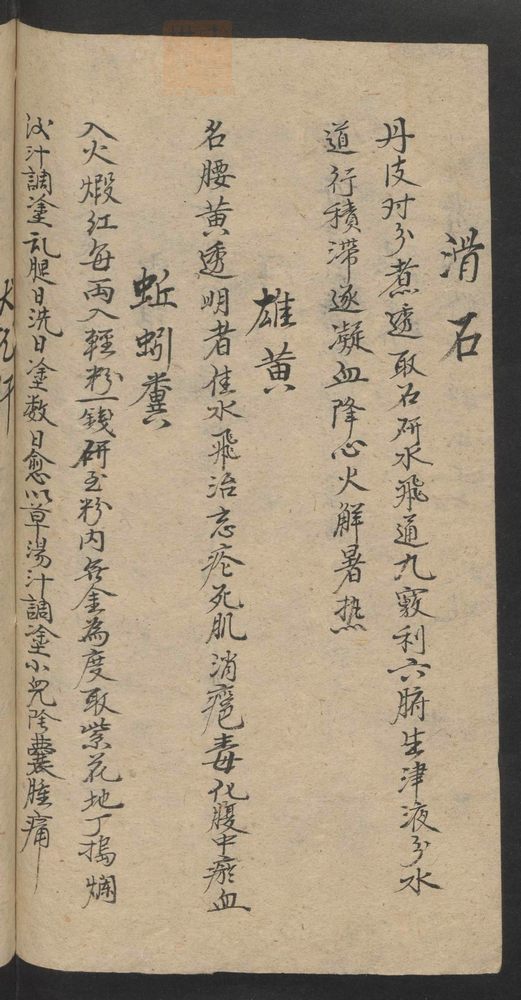 滑石
丹皮对分煮透取石研水飛通九竅利六腑生津液分水
道行積滯逐凝血降心火解暑热
雄黄
名腰黄透明者佳水飛治惡瘡死肌消瘡毒化腹中瘀血
蚯蚓糞
入火煅紅每両入輕粉一錢研至粉内無金為度取紫花地丁搗爛
汁調塗乱腿日洗日塗数日愈以草湯汁調塗小兒陰囊腫痛